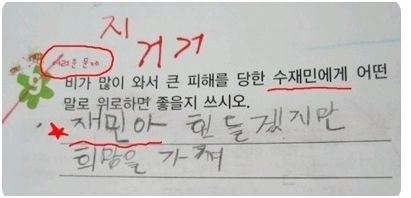 지
거거
어려운 문제
9 비가 많이 와서 큰 피해를 당한 수재민에게 어떤
말로 위로하면 좋을지 쓰시오.
재민아 힘들겠지만
희망을 가져